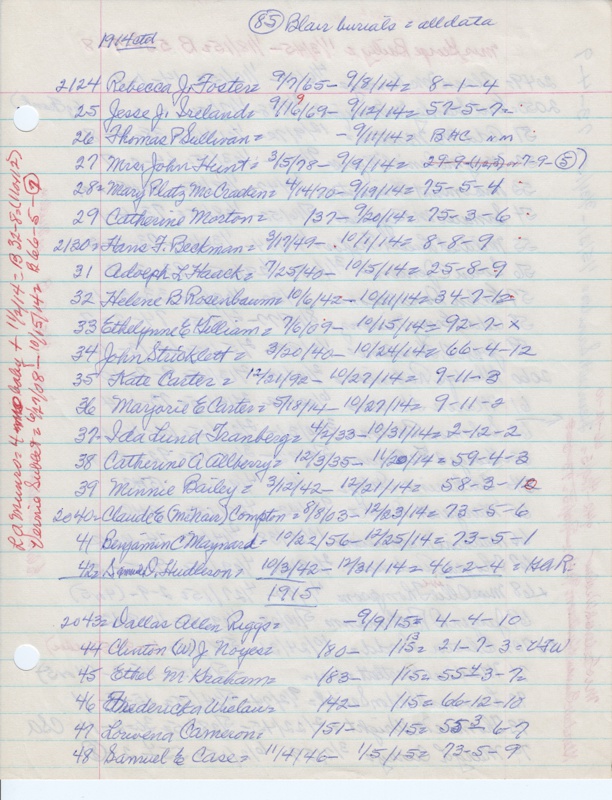 (85) Blair burials = all data
1914 ctd
2124 Rebecca J. Foster = 9/7/65 - 9/8/14 = 8-1-4
25 Jesse J. Ireland = 9/16/69 - 9/12/14 = 57-5-7=
26 Thomas P Sullivan = - 9/11/14 = BHC nm
27 Mrs. John Hunt = 3/5/78 - 9/9/14 = 7-9-(5)
28 = Mary Platz McCracken = 4/14/70 - 9/19/14 = 75-5-4
29 Catherine Morton = /37 - 9/20/14 = 75-3-6
2130 = Hans F. Beckman = 9/17/49 - 10/1/14 = 8-8-9
31 Adolph L. Haack = 7/25/40 - 10/5/14 = 25-8-9
32 Helene B Rosenbaum = 10/6/42 - 10/11/14 = 34-7-12
33 Ethelynne E Gilliam = 7/6/09 - 10/15/14 = 92-7-x
34 John Stricklett = 3/20/40 - 10/24/14 = 66-4-12
35 Kate Carter = 12/21/92 - 10/27/14 = 9-11-3
36 Marjorie E Carter = 5/18/14 - 10/27/14 = 9-11-2
37 Ida Lund Tranberg = 4/2/33 - 10/31/14 = 2-12-2
38 Catherine A Allberry = 12/3/35 - 11/20/14 = 59-4-3
39 Minnie Bailey = 3/12/42 - 12/21/14 = 58-3-12
2040 - Claude E (McNair) Compton = 8/8/03 - 12/23/14 = 73-5-6
41 Benjamin C Maynard = 10/22/56 - 12/25/14 = 73-5-1
42 = Samuel J. Hudleson = 10/3/42 - 12/31/14 = 46-2-4 = GAR.
1915
2043 = Dallas Allen Riggs = - 9/9/15 = 4-4-10
44 Clinton (W) J. Noyes = /80 - /15 = 21-7-3 = VFW
45 Ethel M Graham = /83 - /15 = 55-3-7=
46 Fredericka Wielan = /42 - /15 = 66-12-10
47 Lowena Cameron = /51 - /15 = 6-7
48 Samuel E Case = 11/4/46 - 1/5/15 = 73-5-9
baby + 11/2/14 = B 32-8-(11or12)
Vernie = 8/27/08 - 10/15/14 = B 66-5-(9)